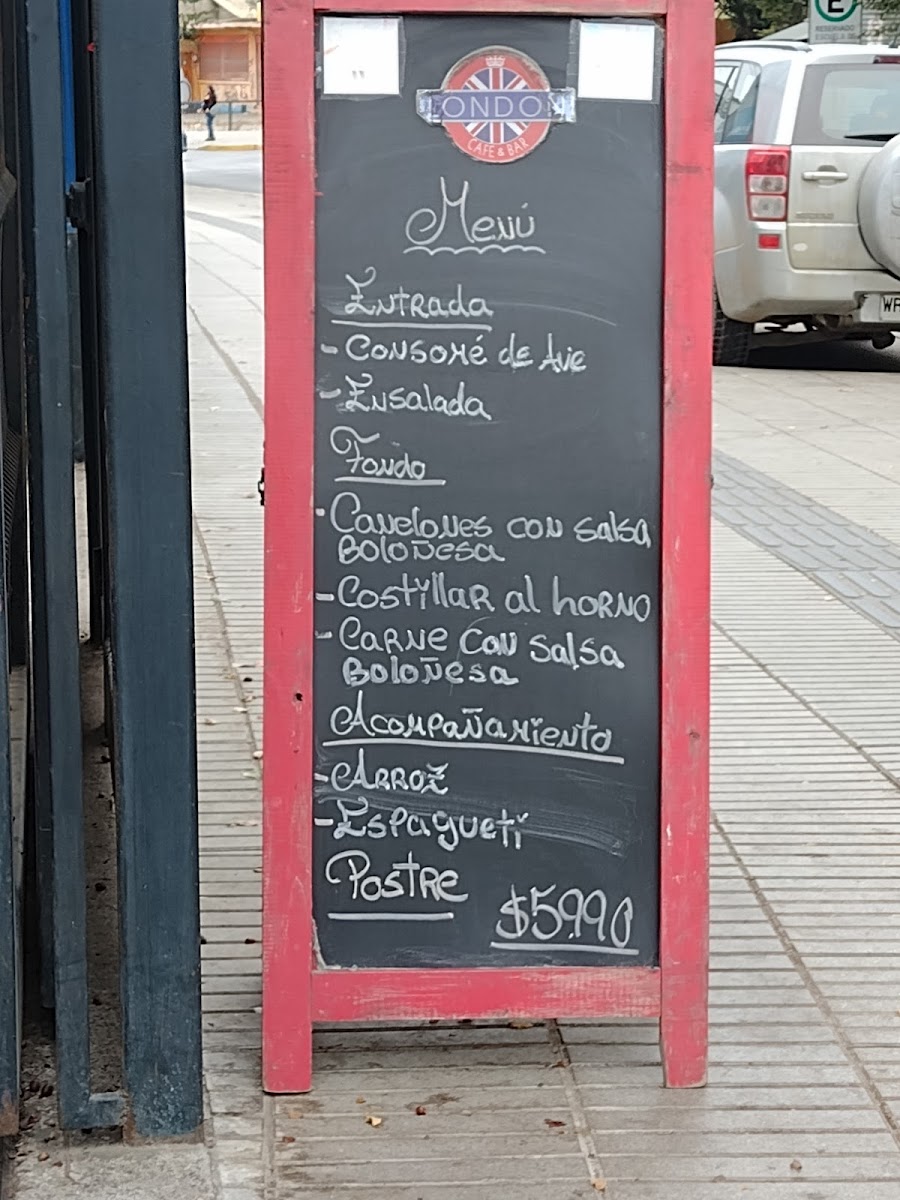 LONDON
CAFE & BAR
Menú
Entrada
- Consomé de Ave
- Ensalada
Fondo
- Canelones con salsa
Boloñesa
- Costillar al horno
- Carne con salsa
Boloñesa
Acompañamiento
- Arroz
- Espagueti
Postre
$5.990
E
RESERVADO
WR